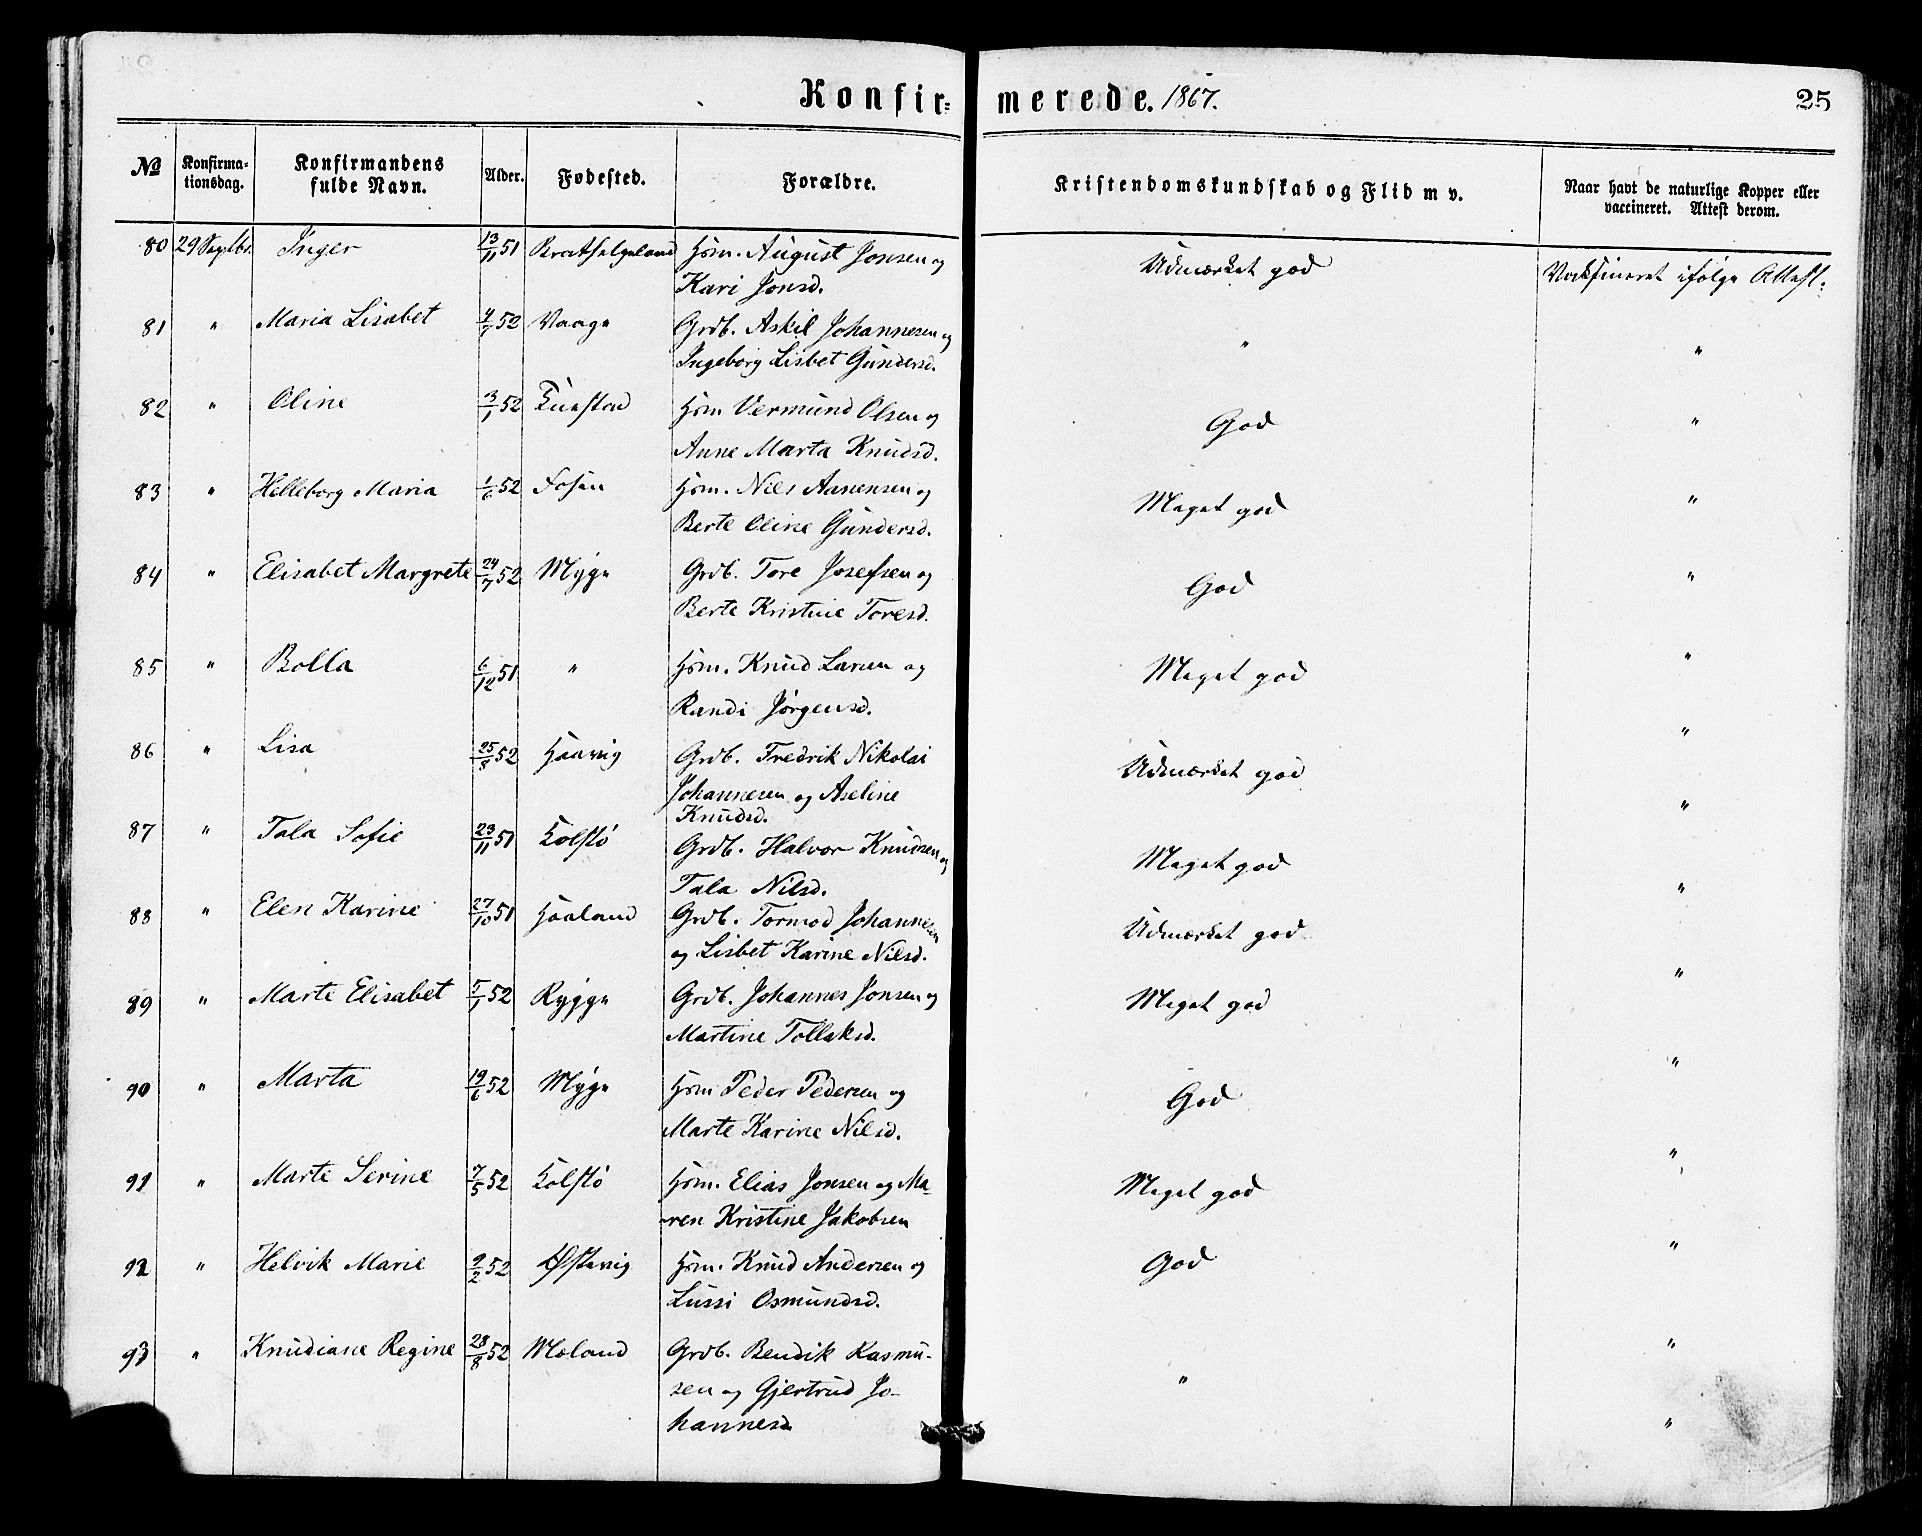 Konfirmerede. 1867. 25
№ Konfirmationsdag. Konfirmandens fulde Navn. Alder. Fødested. Forældre. Kristendomskundskab og Flid m v. Naar havt de naturlige Kopper eller vaccineret. Attest derom.
80 29 Septbr. Inger 13/11 51 Hsm. August Jonsen og Udmærket god Vaksineret ifølge Attest.
Kari Jonsd.
81 " Maria Lisabet 52 Vaage Grdb. Askil Johannesen og " "
Ingeborg Lisbet Gundersd.
82 " Oline 3/1 52 Hsm Vermund Olsen og God "
Anne Marta Knudsd.
83 " Helleborg Maria 1/6 52 Fosen Hsm. Nils Aanensen og Meget god "
Berte Oline Gundersd.
84 " Elisabet Margrete 24/7 52 Myge Grdb. Tore Josefsen og God "
Berte Kristine Toresd.
85 " Bolla 6/12 51 " Hsm. Knud Larsen og Meget god "
Randi Jørgensd.
86 " Lisa 25/8 52 Haavig Grdb. Fredrik Nikolai Udmærket god "
Johannesen og Aseline
Knudsd.
87 " Tala Sofie 23/11 51 Kolstø Grdb. Halvor Knudsen og Meget god "
Tala Nilsd.
88 " Elen Karine 27/10 51 Haaland Grdb. Tormod Johannesen Udmærket god "
og Lisbet Karine Nilsd.
89 " Marte Elisabet 5/1 52 Rygge Grdb. Johannes Jonsen og Meget god "
Martine Tollaksd.
90 " Marta 19/6 52 Myge Hsm Peder Pedersen og God "
Marte Karine Nilsd.
91 " Marte Serine 7/5 52 Kolstø Hsm. Elias Jonsen og Ma- Meget god "
ren Kristine Jakobsen
92 " Helvik Marie 9/2 52 Østevig Hsm. Knud Andersen og God "
Lussi Osmundsd.
93 " Knudiane Regine 28/8 52 Moland Grdb. Bendik Rasmu- " "
sen og Gjertrud Jo-
hannesd. "